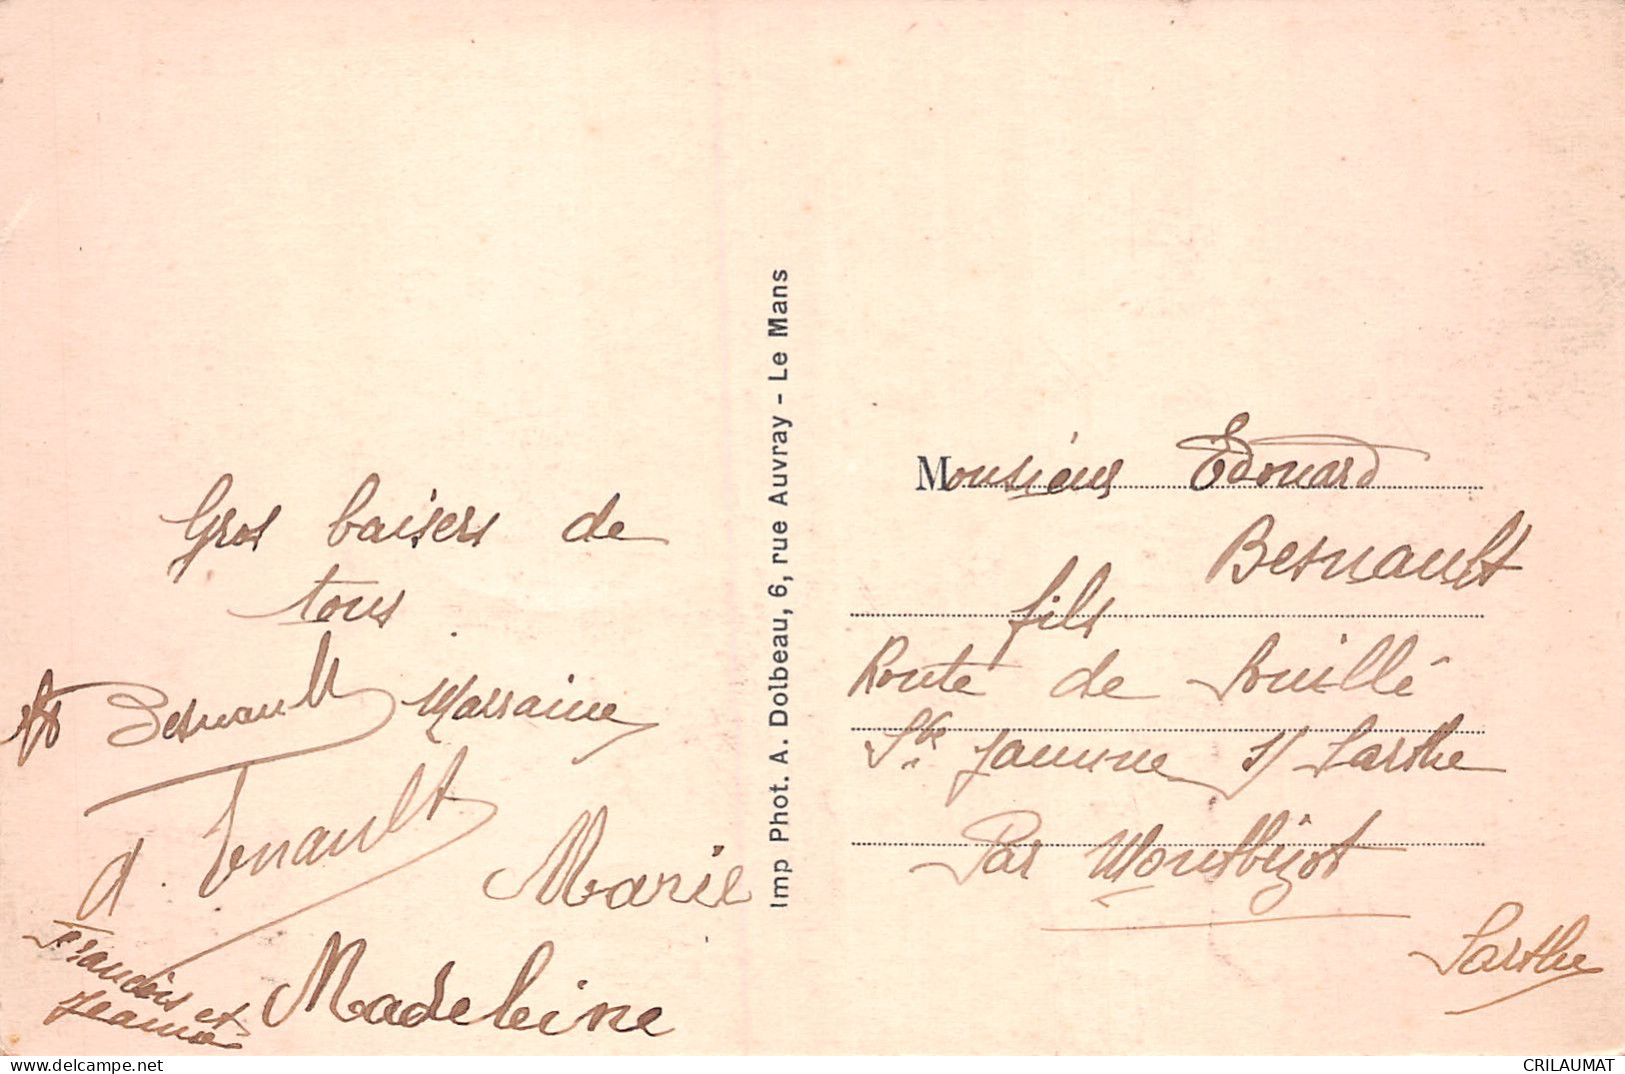 Gros baisers de
tous
Besnault Marraine
A. Besnault
Marie
François et
Jeanne
Madeleine
Imp Phot. A. Dolbeau, 6, rue Auvray - Le Mans
Monsieur Edouard
Besnault
fils
Route de Souillé
Ste Jamme s/ Sarthe
Par Montbizot
Sarthe
CRILAUMAT